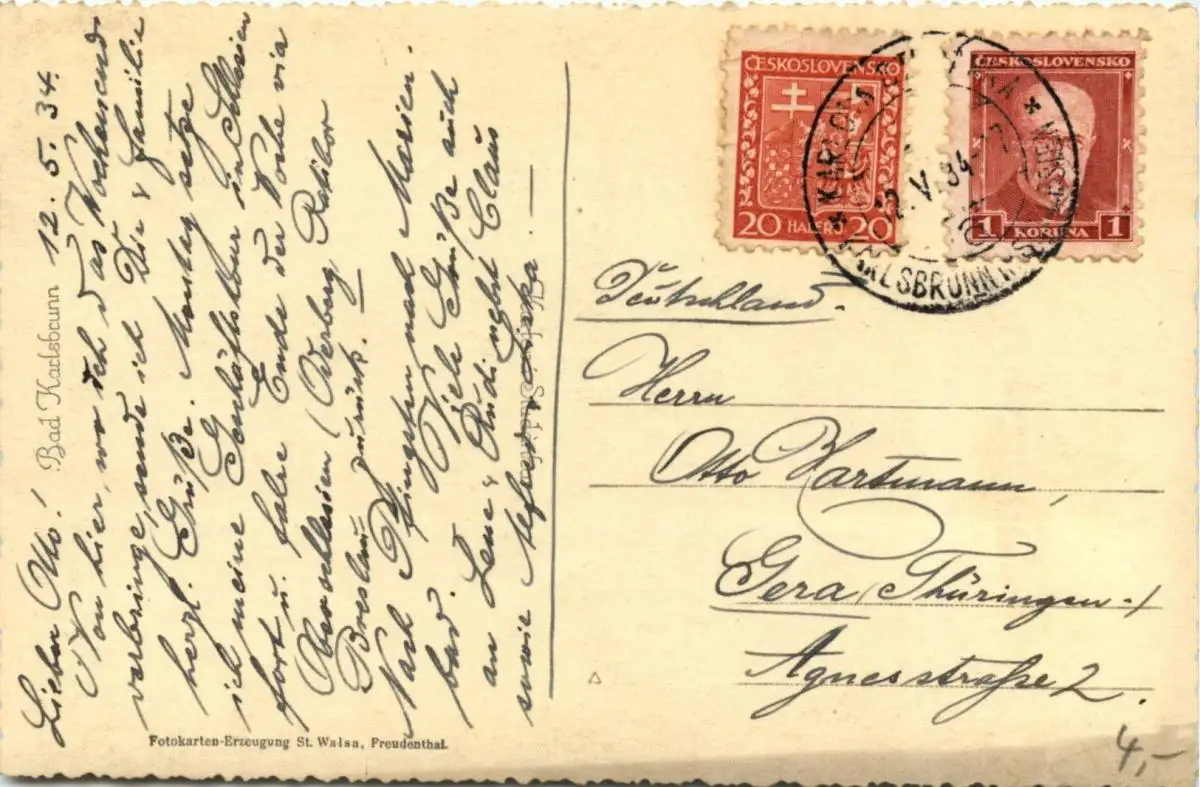 Bad Karlsbrunn 12.5.34.
Lieber Otto!
Von hier, wo ich das Wochenende
verbringe, sende ich Dir & Familie
herzl. Grüße. Montag setze
ich meine Geschäftstour in Schlesien
fort u. fahre Ende der Woche via
Oberschlesien (Oderberg Ratibor
Breslau zurück.
Nach Pfingsten nach Marien-
bad. Viele Grüße auch
an Lene & Rudi nebst Claus
sowie
Fotokarten-Erzeugung St. Walsa, Freudenthal.
ČESKOSLOVENSKO
20 HALÉŘŮ 20
ČESKOSLOVENSKO
1 KORUNA 1
12.V.34
KARLSBRUNN
Deutschland.
Herrn
Otto Hartmann,
Gera (Thüringen-)
Agnesstraße 2.
4,-